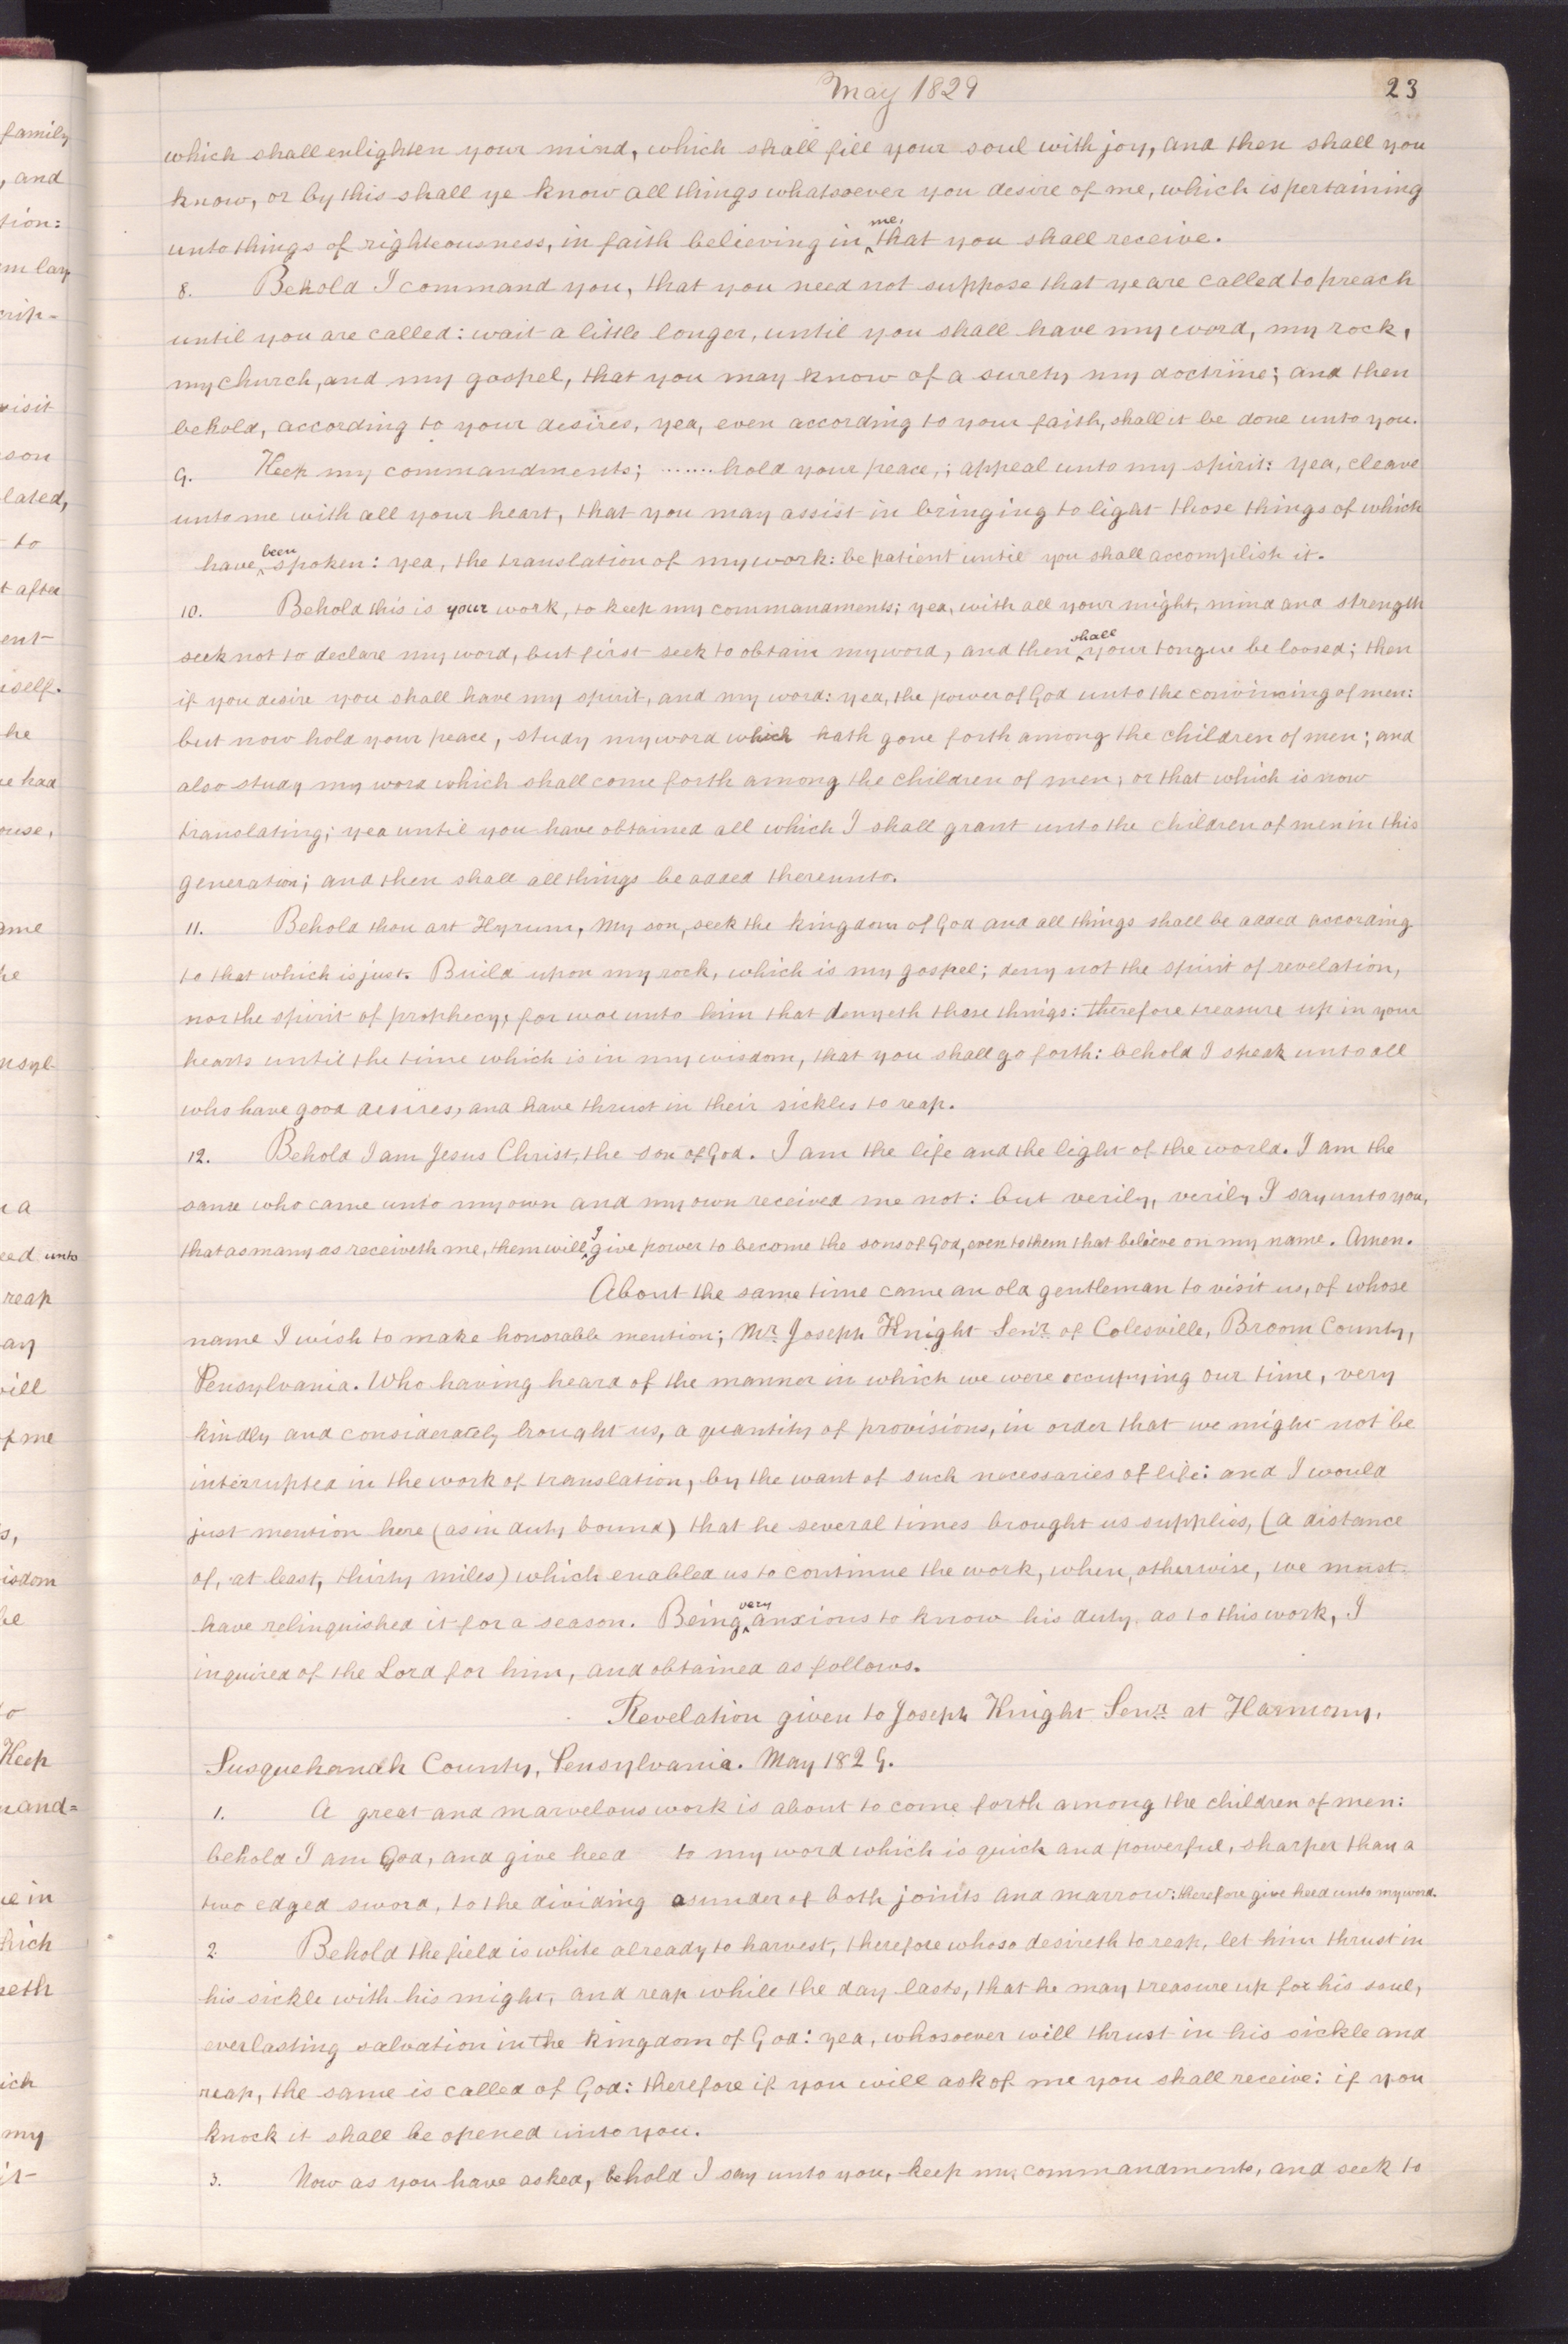 May 1829 23
which shall enlighten your mind, which shall fill your soul with joy, and then shall you
know, or by this shall ye know all things whatsoever you desire of me, which is pertaining
unto things of righteousness, in faith believing in ^me,^ that you shall receive.
8. Behold I command you, that you need not suppose that ye are called to preach
until you are called: wait a little longer, until you shall have my word, my rock,
my church, and my gospel, that you may know of a surety my doctrine; and then
behold, according to your desires, yea, even according to your faith, shall it be done unto you.
9. Keep my commandments; ....... hold your peace,; appeal unto my spirit: Yea, cleave
unto me with all your heart, that you may assist in bringing to light those things of which
have ^been^ spoken: yea, the translation of my work: be patient until you shall accomplish it.
10. Behold this is your work, to keep my commandments; yea, with all your might, mind and strength
seek not to declare my word, but first seek to obtain my word, and then ^shall^ your tongue be loosed; then
if you desire you shall have my spirit, and my word: yea, the power of God unto the convincing of men:
but now hold your peace, study my word which hath gone forth among the children of men; and
also study my word which shall come forth among the children of men; or that which is now
translating; yea until you have obtained all which I shall grant unto the children of men in this
generation; and then shall all things be added thereunto.
11. Behold thou art Hyrum, my son, seek the kingdom of God and all things shall be added according
to that which is just. Build upon my rock, which is my gospel; deny not the spirit of revelation,
nor the spirit of prophecy, for woe unto him that denyeth these things: therefore treasure up in your
hearts until the time which is in my wisdom, that you shall go forth: behold I speak unto all
who have good desires, and have thrust in their sickles to reap.
12. Behold I am Jesus Christ, the son of God. I am the life and the light of the world. I am the
same who came unto my own and my own received me not: but verily, verily I say unto you,
that as many as receiveth me, them will ^I^ give power to become the sons of God, even to them that believe on my name. Amen.
About the same time came an old gentleman to visit us, of whose
name I wish to make honorable mention; Mr. Joseph Knight Senr. of Colesville, Broom County,
Pensylvania. Who having heard of the manner in which we were occupying our time, very
kindly and considerately brought us, a quantity of provisions, in order that we might not be
interrupted in the work of translation, by the want of such necessaries of life: and I would
just mention here (as in duty bound) that he several times brought us supplies, (a distance
of, at least, thirty miles) which enabled us to continue the work, when, otherwise, we must
have relinquished it for a season. Being ^very^ anxious to know his duty as to this work, I
inquired of the Lord for him, and obtained as follows.
Revelation given to Joseph Knight Senr. at Harmony,
Susquehanah County, Pensylvania. May 1829.
1. A great and marvelous work is about to come forth among the children of men:
behold I am God, and give heed to my word which is quick and powerful, sharper than a
two edged sword, to the dividing asunder of both joints and marrow: therefore give heed unto my word.
2. Behold the field is white already to harvest, therefore whoso desireth to reap, let him thrust in
his sickle with his might, and reap while the day lasts, that he may treasure up for his soul,
everlasting salvation in the kingdom of God: yea, whosoever will thrust in his sickle and
reap, the same is called of God: therefore if you will ask of me you shall receive: if you
knock it shall be opened unto you.
3. Now as you have asked, behold I say unto you, keep my commandments, and seek to